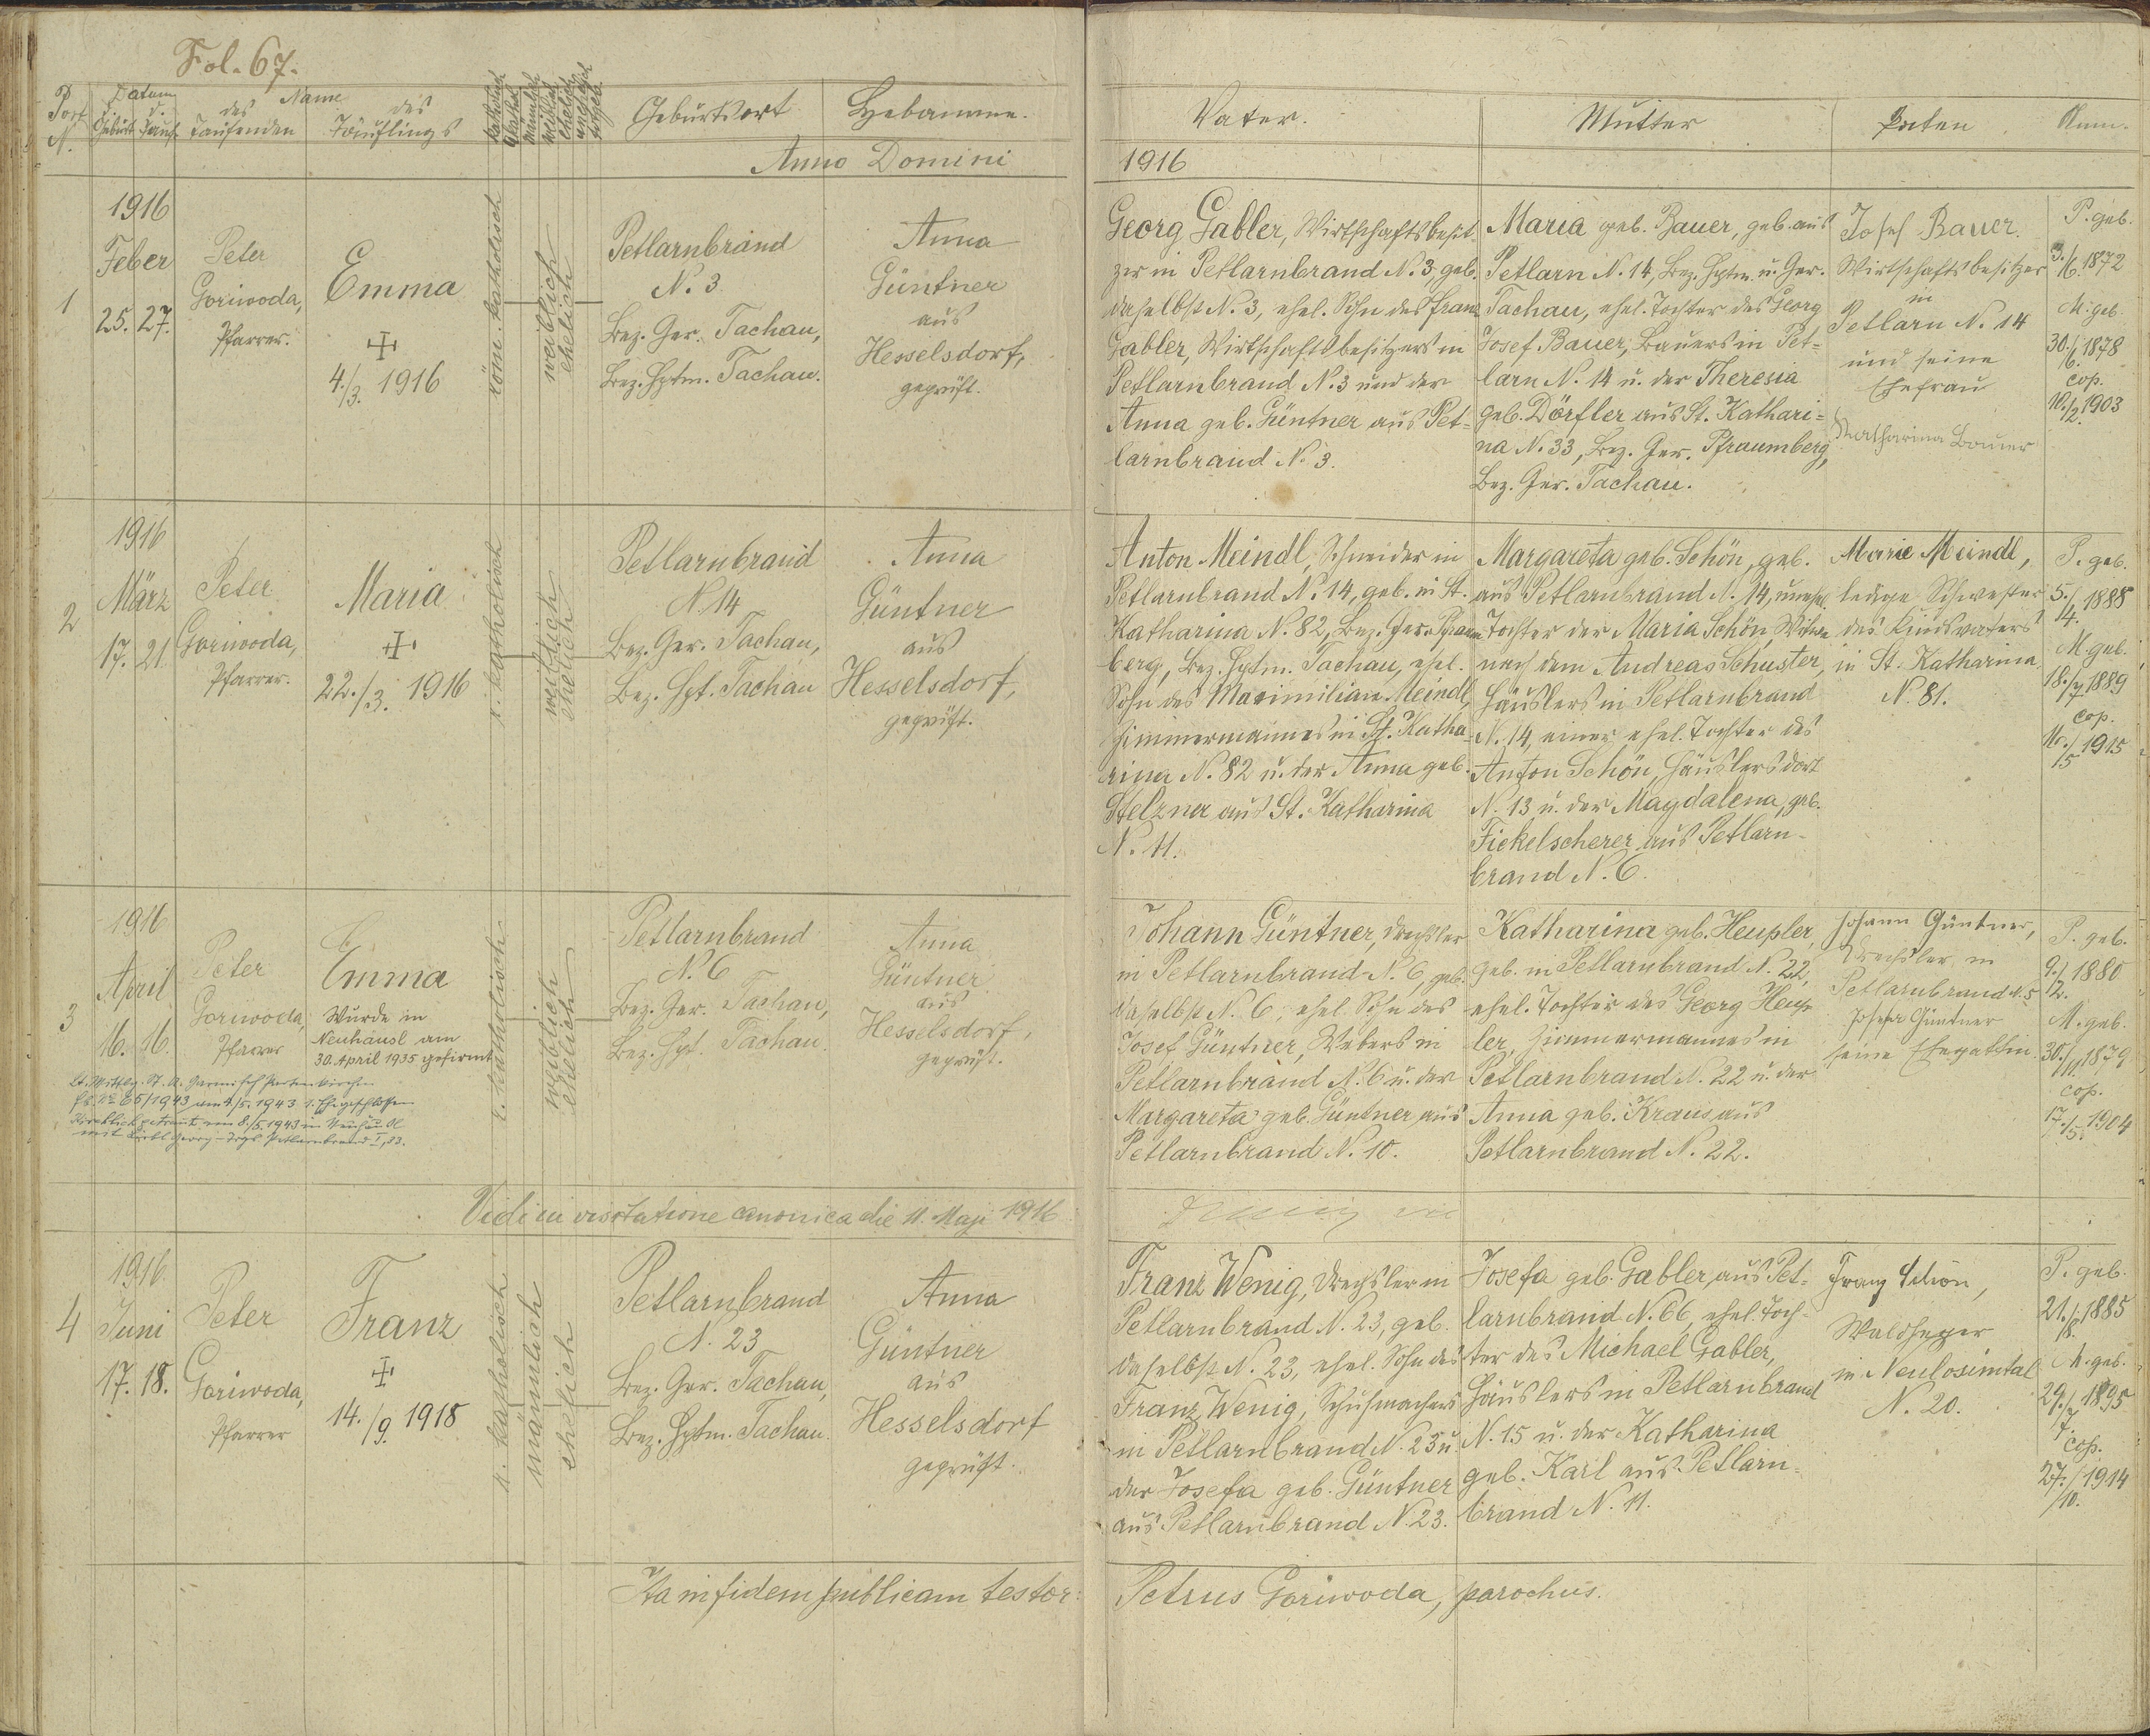 Fol. 67.
Port N.
Datum
d. Geburt
d. Tauf
Name
des Taufenden
des Täuflings
katholisch
männlich
weiblich
ehelich
unehelich
Geburtsort
Hebamme.
Anno Domini
1
1916
Feber
25. 27.
Peter
Goriwoda,
Pfarrer.
Emma
4./3. 1916
röm. katholisch
weiblich
ehelich
Petlarnbrand
N. 3
Bez. Ger. Tachau,
Bez. Hptm. Tachau.
Anna
Güntner
aus
Hesselsdorf,
geprüft.
2
1916
März
17. 21.
Peter
Goriwoda,
Pfarrer.
Maria
22./3. 1916
r. katholisch
weiblich
ehelich
Petlarnbrand
N. 14
Bez. Ger. Tachau,
Bez. Hpt. Tachau
Anna
Güntner
aus
Hesselsdorf,
geprüft.
3
1916
April
16. 16.
Peter
Goriwoda,
Pfarrer
Emma
Wurde in
Neuhäusl am
30. April 1935 gefirmt
lt. Mittlg. St. A. Garmisch Partenkirchen
65/1943 am 4./5. 1943 1. Ehe geschlossen
Kirchlich getraut am 8./5. 1943 in
mit Georg Petlarnbrand
r. katholisch
weiblich
ehelich
Petlarnbrand
N. 6
Bez. Ger. Tachau,
Bez. Hpt. Tachau.
Anna
Güntner
aus
Hesselsdorf,
geprüft.
Vidi in visitatione canonica die 11. Maji 1916
4
1916
Juni
17. 18.
Peter
Goriwoda,
Pfarrer
Franz
14./9. 1918
r. katholisch
männlich
ehelich
Petlarnbrand
N. 23
Bez. Ger. Tachau,
Bez. Hptm. Tachau.
Anna
Güntner
aus
Hesselsdorf
geprüft.
Ita in fidem publicam testor:
Vater.
Mutter
Paten.
Anm.
1916
Georg Gabler, Wirtschaftsbesit-
zer in Petlarnbrand N. 3, geb.
daselbst N. 3, ehel. Sohn des Franz
Gabler, Wirtschaftsbesitzers in
Petlarnbrand N. 3 und der
Anna geb. Güntner aus Pet-
larnbrand N. 3.
Maria geb. Bauer, geb. aus
Petlarn N. 14, Bez. Hptm. u. Ger.
Tachau, ehel. Tochter des Georg
Josef Bauer, Bauers in Pet-
larn N. 14 u. der Theresia
geb. Dörfler aus St. Kathari-
na N. 33, Bez. Ger. Pfraumberg,
Bez. Ger. Tachau.
Josef Bauer.
Wirtschaftsbesitzer
in
Petlarn N. 14
und seine
Ehefrau
Katharina Bauer
P. geb.
3./6. 1872
M. geb.
30./6. 1878
cop.
10./2. 1903
Anton Meindl, Schneider in
Petlarnbrand N. 14, geb. in St.
Katharina N. 82, Bez. Ger. Pfraum-
berg, Bez. Hptm. Tachau, ehel.
Sohn des Maximilian Meindl,
Zimmermannes in St. Katha-
rina N. 82 u. der Anna geb.
Stelzner aus St. Katharina
N. 11.
Margareta geb. Schön, geb.
aus Petlarnbrand N. 14, unehel.
Tochter der Maria Schön, Witwe
nach dem Andreas Schuster,
Häuslers in Petlarnbrand
N. 14, einer ehel. Tochter des
Anton Schön, Häuslers dort
N. 13 u. der Magdalena, geb.
Fickelscherer aus Petlarn-
brand N. 6.
Marie Meindl,
ledige Schwester
des Kindsvaters
in St. Katharina
N. 81.
P. geb.
5./4. 1888
M. geb.
18./7. 1889
cop.
/5 1915
Johann Güntner, Drechsler
in Petlarnbrand N. 6, geb.
daselbst N. 6, ehel. Sohn des
Josef Güntner, Webers in
Petlarnbrand N. 6 u. der
Margareta geb. Güntner aus
Petlarnbrand N. 10.
Katharina geb. Heupler,
geb. in Petlarnbrand N. 22,
ehel. Tochter des Georg Heup-
ler, Zimmermannes in
Petlarnbrand N. 22 u. der
Anna geb. Kraus aus
Petlarnbrand N. 22.
Johann Güntner,
Drechsler in
Petlarnbrand N. 5
Josefa Güntner
seine Ehegattin.
P. geb.
9./12. 1880
M. geb.
30./11. 1879
cop.
17./5. 1904
Franz Wenig, Drechsler in
Petlarnbrand N. 23, geb.
daselbst N. 23, ehel. Sohn des
Franz Wenig, Schuhmachers
in Petlarnbrand N. 23 u.
der Josefa geb. Güntner
aus Petlarnbrand N. 23.
Josefa geb. Gabler, aus Pet-
larnbrand N. 66, ehel. Toch-
ter des Michael Gabler,
Häuslers in Petlarnbrand
N. 15 u. der Katharina
geb. Karl aus Petlarn-
brand N. 11.
Franz Schön,
Waldheger
in Neulosimtal
N. 20.
P. geb.
21./8. 1885
M. geb.
29./7. 1895
cop.
27./10. 1914
Petrus Goriwoda, parochus.